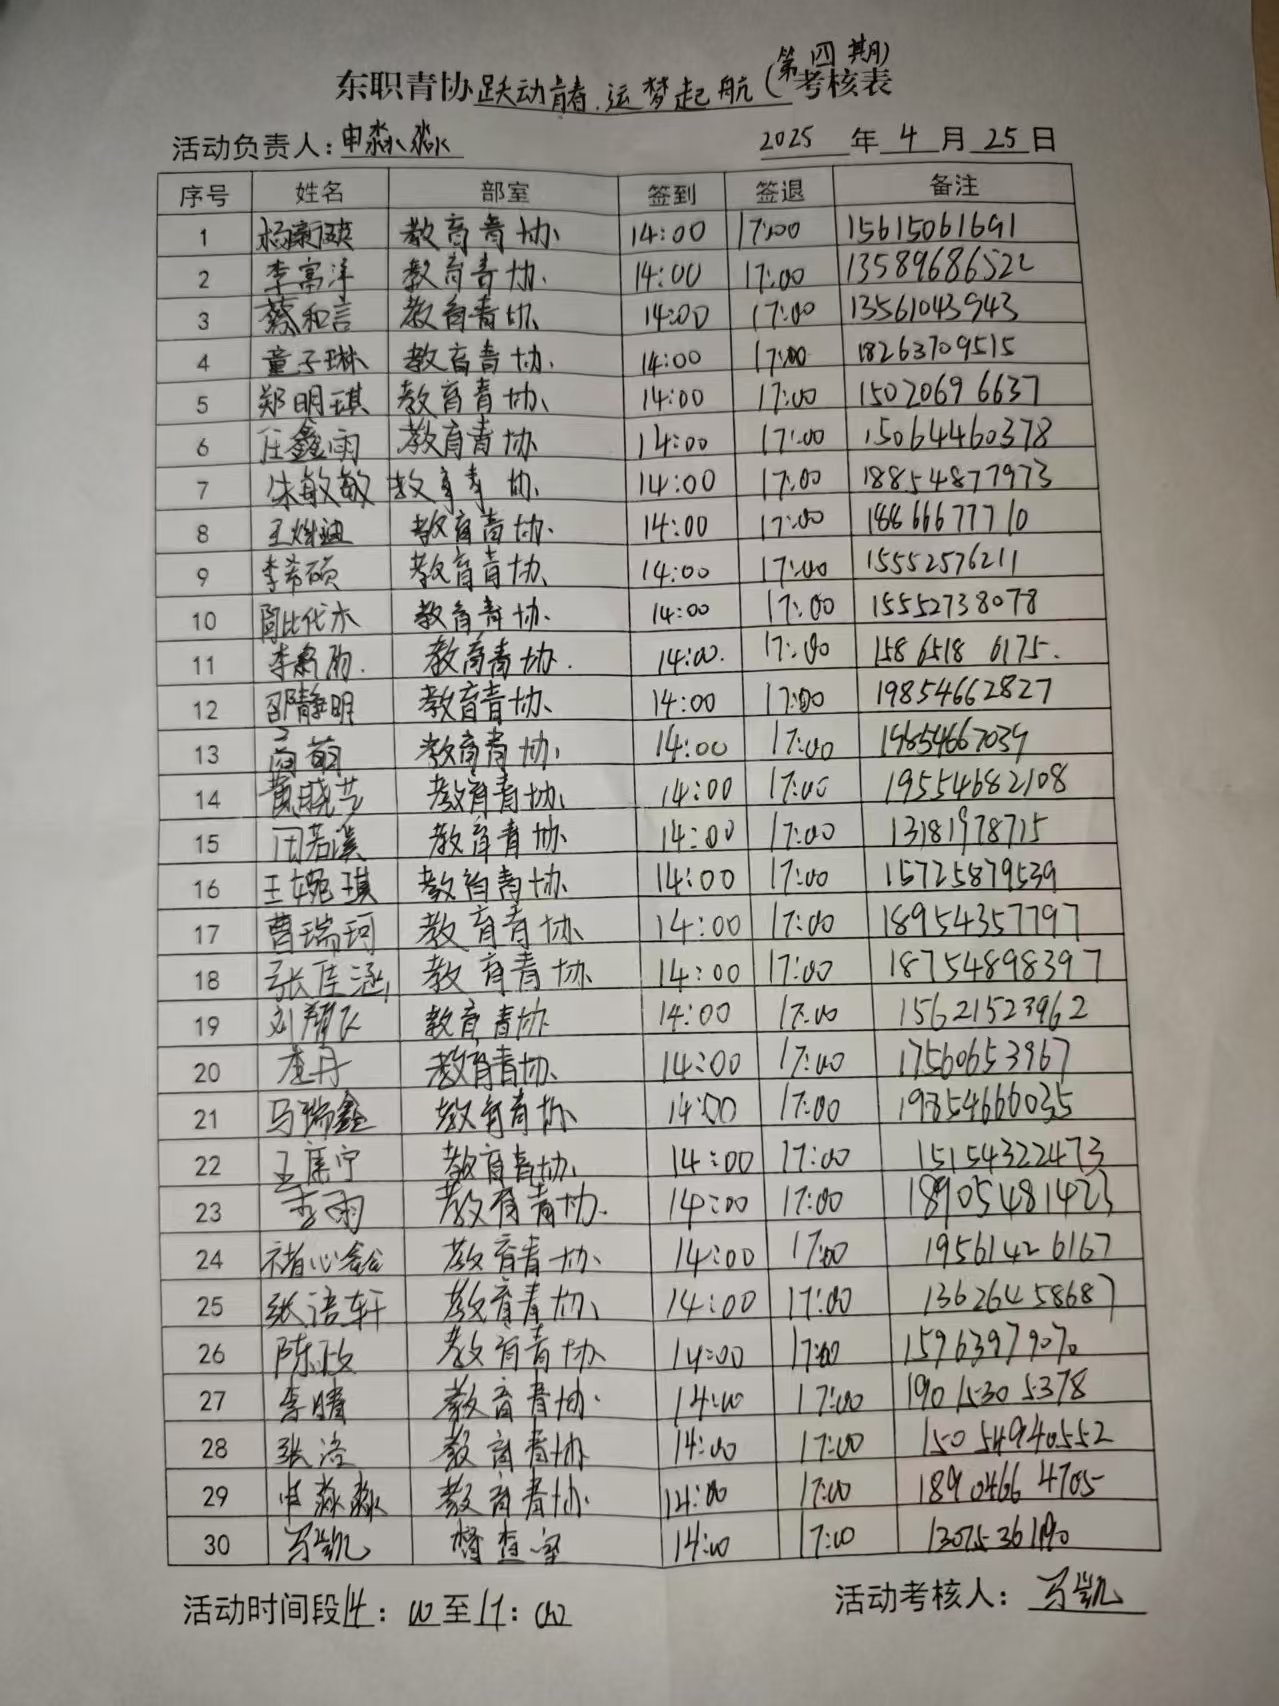 (第四期)
东职青协跃动青春.运梦起航考核表
活动负责人:申淼淼 2025年4月25日
序号 姓名 部室 签到 签退 备注
1 教育青协 14:00 17:00 15615061691
2 李富洋 教育青协 14:00 17:00 13589686522
3 蔡和言 教育青协 14:00 17:00 13561043943
4 童子琳 教育青协 14:00 17:00 18263709515
5 郑明琪 教育青协 14:00 17:00 15020696637
6 任鑫雨 教育青协 14:00 17:00 15064460378
7 朱敏敏 教育青协 14:00 17:00 18854877973
8 教育青协 14:00 17:00 18866677710
9 李希硕 教育青协 14:00 17:00 15552576211
10 教育青协 14:00 17:00 15552738078
11 教育青协. 14:00. 17:00 158 6518 6175.
12 邵静明 教育青协 14:00 17:00 19854662827
13 高萌 教育青协 14:00 17:00 19854667039
14 黄晓艺 教育青协 14:00 17:00 19554682108
15 田若溪 教育青协 14:00 17:00 13181978715
16 王婉琪 教育青协 14:00 17:00 15725879539
17 曹瑞珂 教育青协 14:00 17:00 18954357797
18 张佳涵 教育青协 14:00 17:00 18754898397
19 刘翔飞 教育青协 14:00 17:00 15621523962
20 教育青协 14:00 17:00 17560653967
21 马瑞鑫 教育青协 14:00 17:00 19854666035
22 教育青协 14:00 17:00 15154322473
23 李雨 教育青协 14:00 17:00 18905481423
24 褚心鑫 教育青协 14:00 17:00 19561426167
25 张语轩 教育青协 14:00 17:00 13626458687
26 陈政 教育青协 14:00 17:00 15963979070
27 李晴 教育青协 14:00 17:00 19015305378
28 张洁 教育青协 14:00 17:00 15054940552
29 申淼淼 教育青协 14:00 17:00 18904664705
30 万凯 督查室 14:00 17:00
活动时间段14:00至17:00 活动考核人:万凯